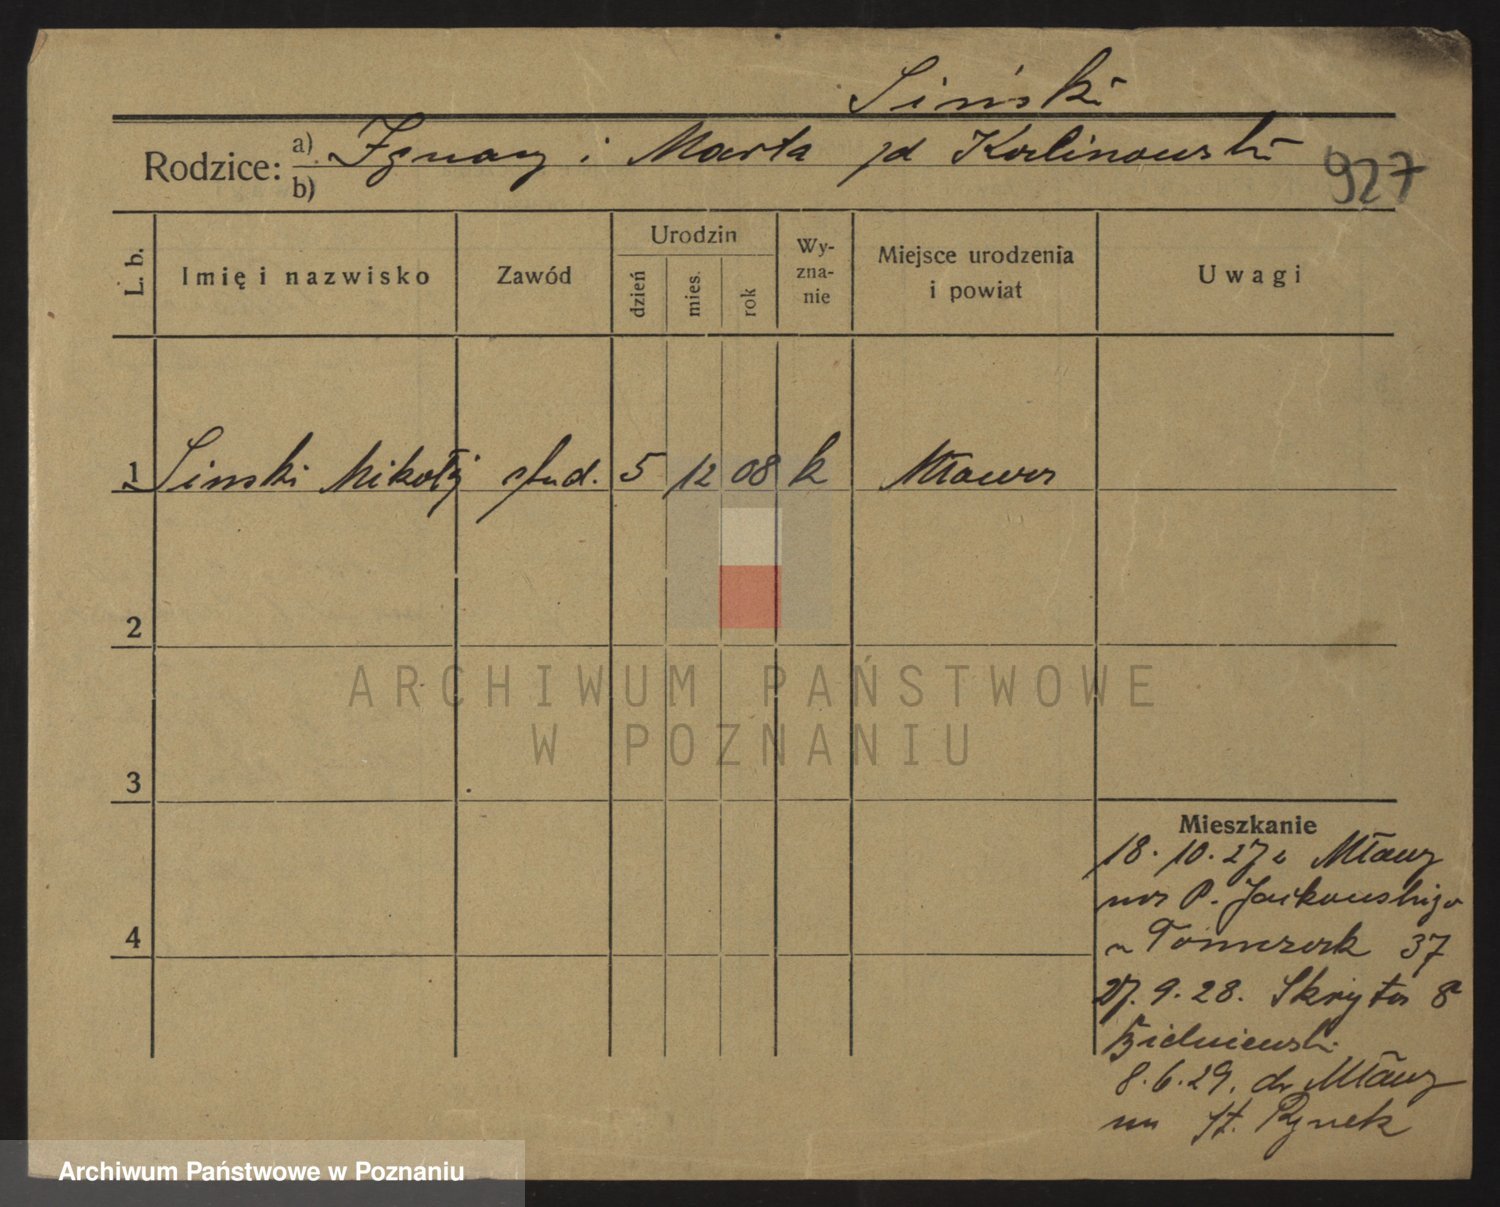 Siński
Rodzice: a) Ignacy i Marta zd Kalinowski
b)
927
L. b. Imię i nazwisko Zawód Urodzin dzień mies. rok Wyznanie Miejsce urodzenia i powiat Uwagi
1 Sinski Mikołaj stud. 5 12 08 k Mława
2
3
4
Mieszkanie
18. 10. 27 z Mławy
na P. Jackowskiego
u Tomczak 37
27. 9. 28. Skryta 8
8. 6. 29. do Mławy
St. Rynek
ARCHIWUM PAŃSTWOWE
W POZNANIU
Archiwum Państwowe w Poznaniu